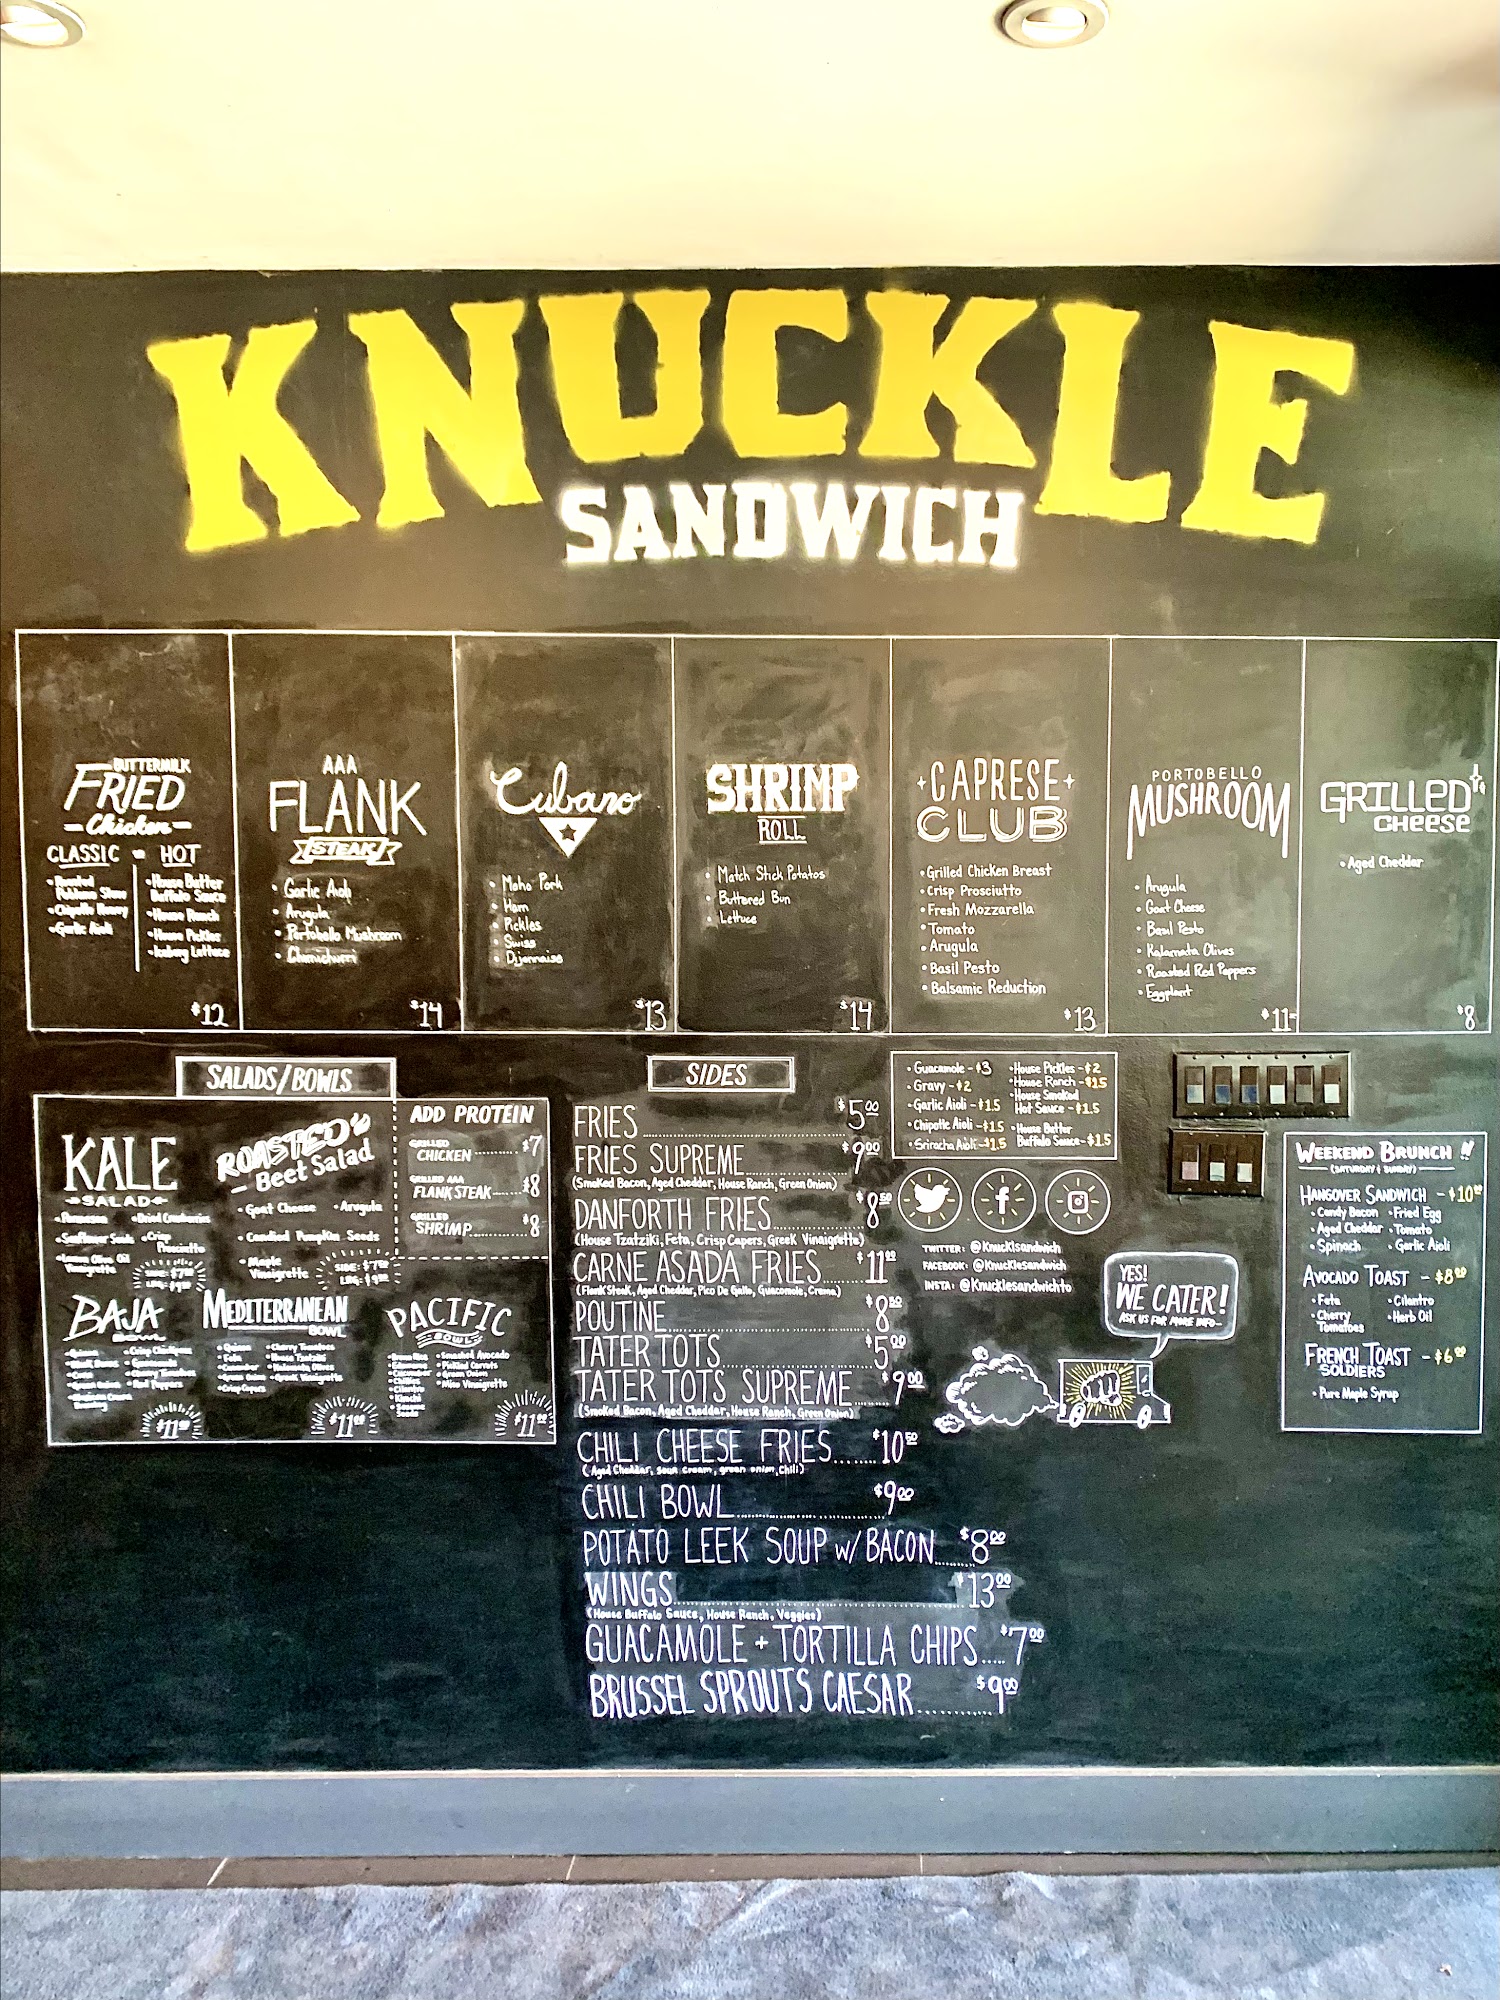 KNUCKLE
SANDWICH
BUTTERMILK
FRIED
Chicken
CLASSIC HOT
• Chipotle Honey
• Garlic Aioli
• House Butter
Buffalo Sauce
• House Ranch
• House Pickles
• Iceberg Lettuce
$12
AAA
FLANK
STEAK
• Garlic Aioli
• Arugula
• Portobello Mushroom
• Chimichurri
$14
Cubano
• Mojo Pork
• Ham
• Pickles
• Swiss
• Dijonnaise
$13
SHRIMP
ROLL
• Match Stick Potatos
• Buttered Bun
• Lettuce
$14
CAPRESE
CLUB
• Grilled Chicken Breast
• Crisp Prosciutto
• Fresh Mozzarella
• Tomato
• Arugula
• Basil Pesto
• Balsamic Reduction
$13
PORTOBELLO
MUSHROOM
• Arugula
• Goat Cheese
• Basil Pesto
• Kalamata Olives
• Roasted Red Peppers
• Eggplant
$11
GRILLED
CHEESE
• Aged Cheddar
$8
SALADS/BOWLS
KALE
SALAD
• Parmesan • Dried Cranberries
• Sunflower Seeds • Crisp
Prosciutto
• Lemon Olive Oil
Vinaigrette
ROASTED
Beet Salad
• Goat Cheese • Arugula
• Candied Pumpkin Seeds
• Maple
Vinaigrette
ADD PROTEIN
GRILLED
CHICKEN $7
GRILLED AAA
FLANK STEAK $8
GRILLED
SHRIMP $8
BAJA
BOWL
$11
MEDITERRANEAN
BOWL
• Quinoa • Cherry Tomatoes
• Feta • House Tzatziki
• Cucumber • Kalamata Olives
• Green Onion • Greek Vinaigrette
• Crisp Capers
$11
PACIFIC
BOWL
• Brown Rice • Smashed Avocado
• Edamame • Pickled Carrots
• Cucumber • Green Onion
• Chilies • Miso Vinaigrette
• Cilantro
• Kimchi
• Sesame
Seeds
$11
SIDES
FRIES $5.00
FRIES SUPREME $9.00
(Smoked Bacon, Aged Cheddar, House Ranch, Green Onion)
DANFORTH FRIES $8.50
(House Tzatziki, Feta, Crisp Capers, Greek Vinaigrette)
CARNE ASADA FRIES $11.00
(Flank Steak, Aged Cheddar, Pico De Gallo, Guacamole, Crema)
POUTINE $8.50
TATER TOTS $5.00
TATER TOTS SUPREME $9.00
(Smoked Bacon, Aged Cheddar, House Ranch, Green Onion)
CHILI CHEESE FRIES $10.50
(Aged Cheddar, sour cream, green onion, chili)
CHILI BOWL $9.00
POTATO LEEK SOUP w/ BACON $8.00
WINGS $13.00
(House Buffalo Sauce, House Ranch, Veggies)
GUACAMOLE + TORTILLA CHIPS $7.00
BRUSSEL SPROUTS CAESAR $9.00
• Guacamole - $3
• Gravy - $2
• Garlic Aioli - $1.5
• Chipotle Aioli - $1.5
• Sriracha Aioli - $1.5
• House Pickles - $2
• House Ranch - $1.5
• House Smoked
Hot Sauce - $1.5
• House Butter
Buffalo Sauce - $1.5
TWITTER: @Knucklsandwich
FACEBOOK: @Knucklesandwich
INSTA: @Knucklesandwichto
YES!
WE CATER!
ASK US FOR MORE INFO~
WEEKEND BRUNCH !!
(SATURDAY & SUNDAY)
HANGOVER SANDWICH - $10.00
• Candy Bacon • Fried Egg
• Aged Cheddar • Tomato
• Spinach • Garlic Aioli
AVOCADO TOAST - $8.00
• Feta • Cilantro
• Cherry • Herb Oil
Tomatoes
FRENCH TOAST - $6.00
SOLDIERS
• Pure Maple Syrup